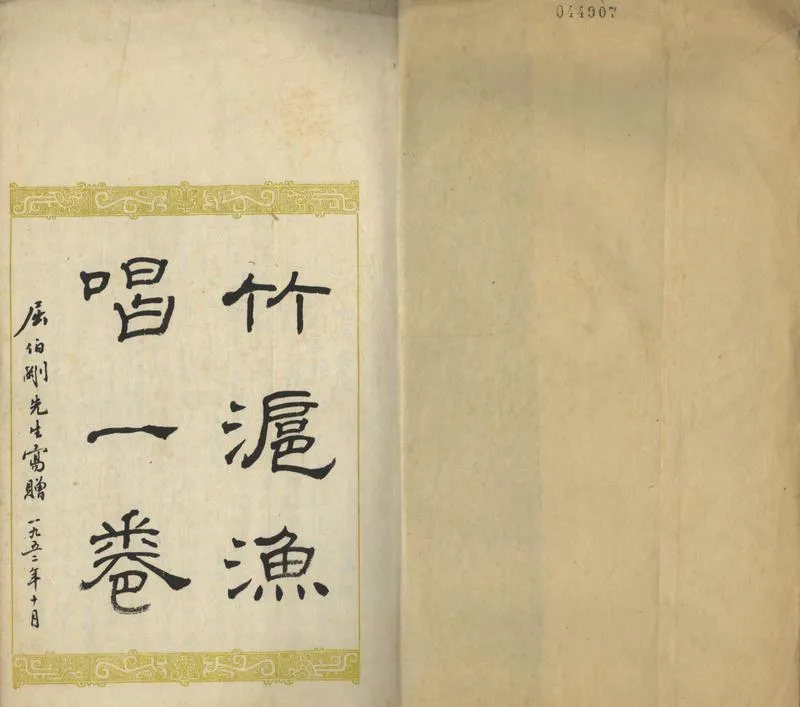 044907
竹滬漁
唱一卷
屈伯剛先生寫贈 一九五二年十月